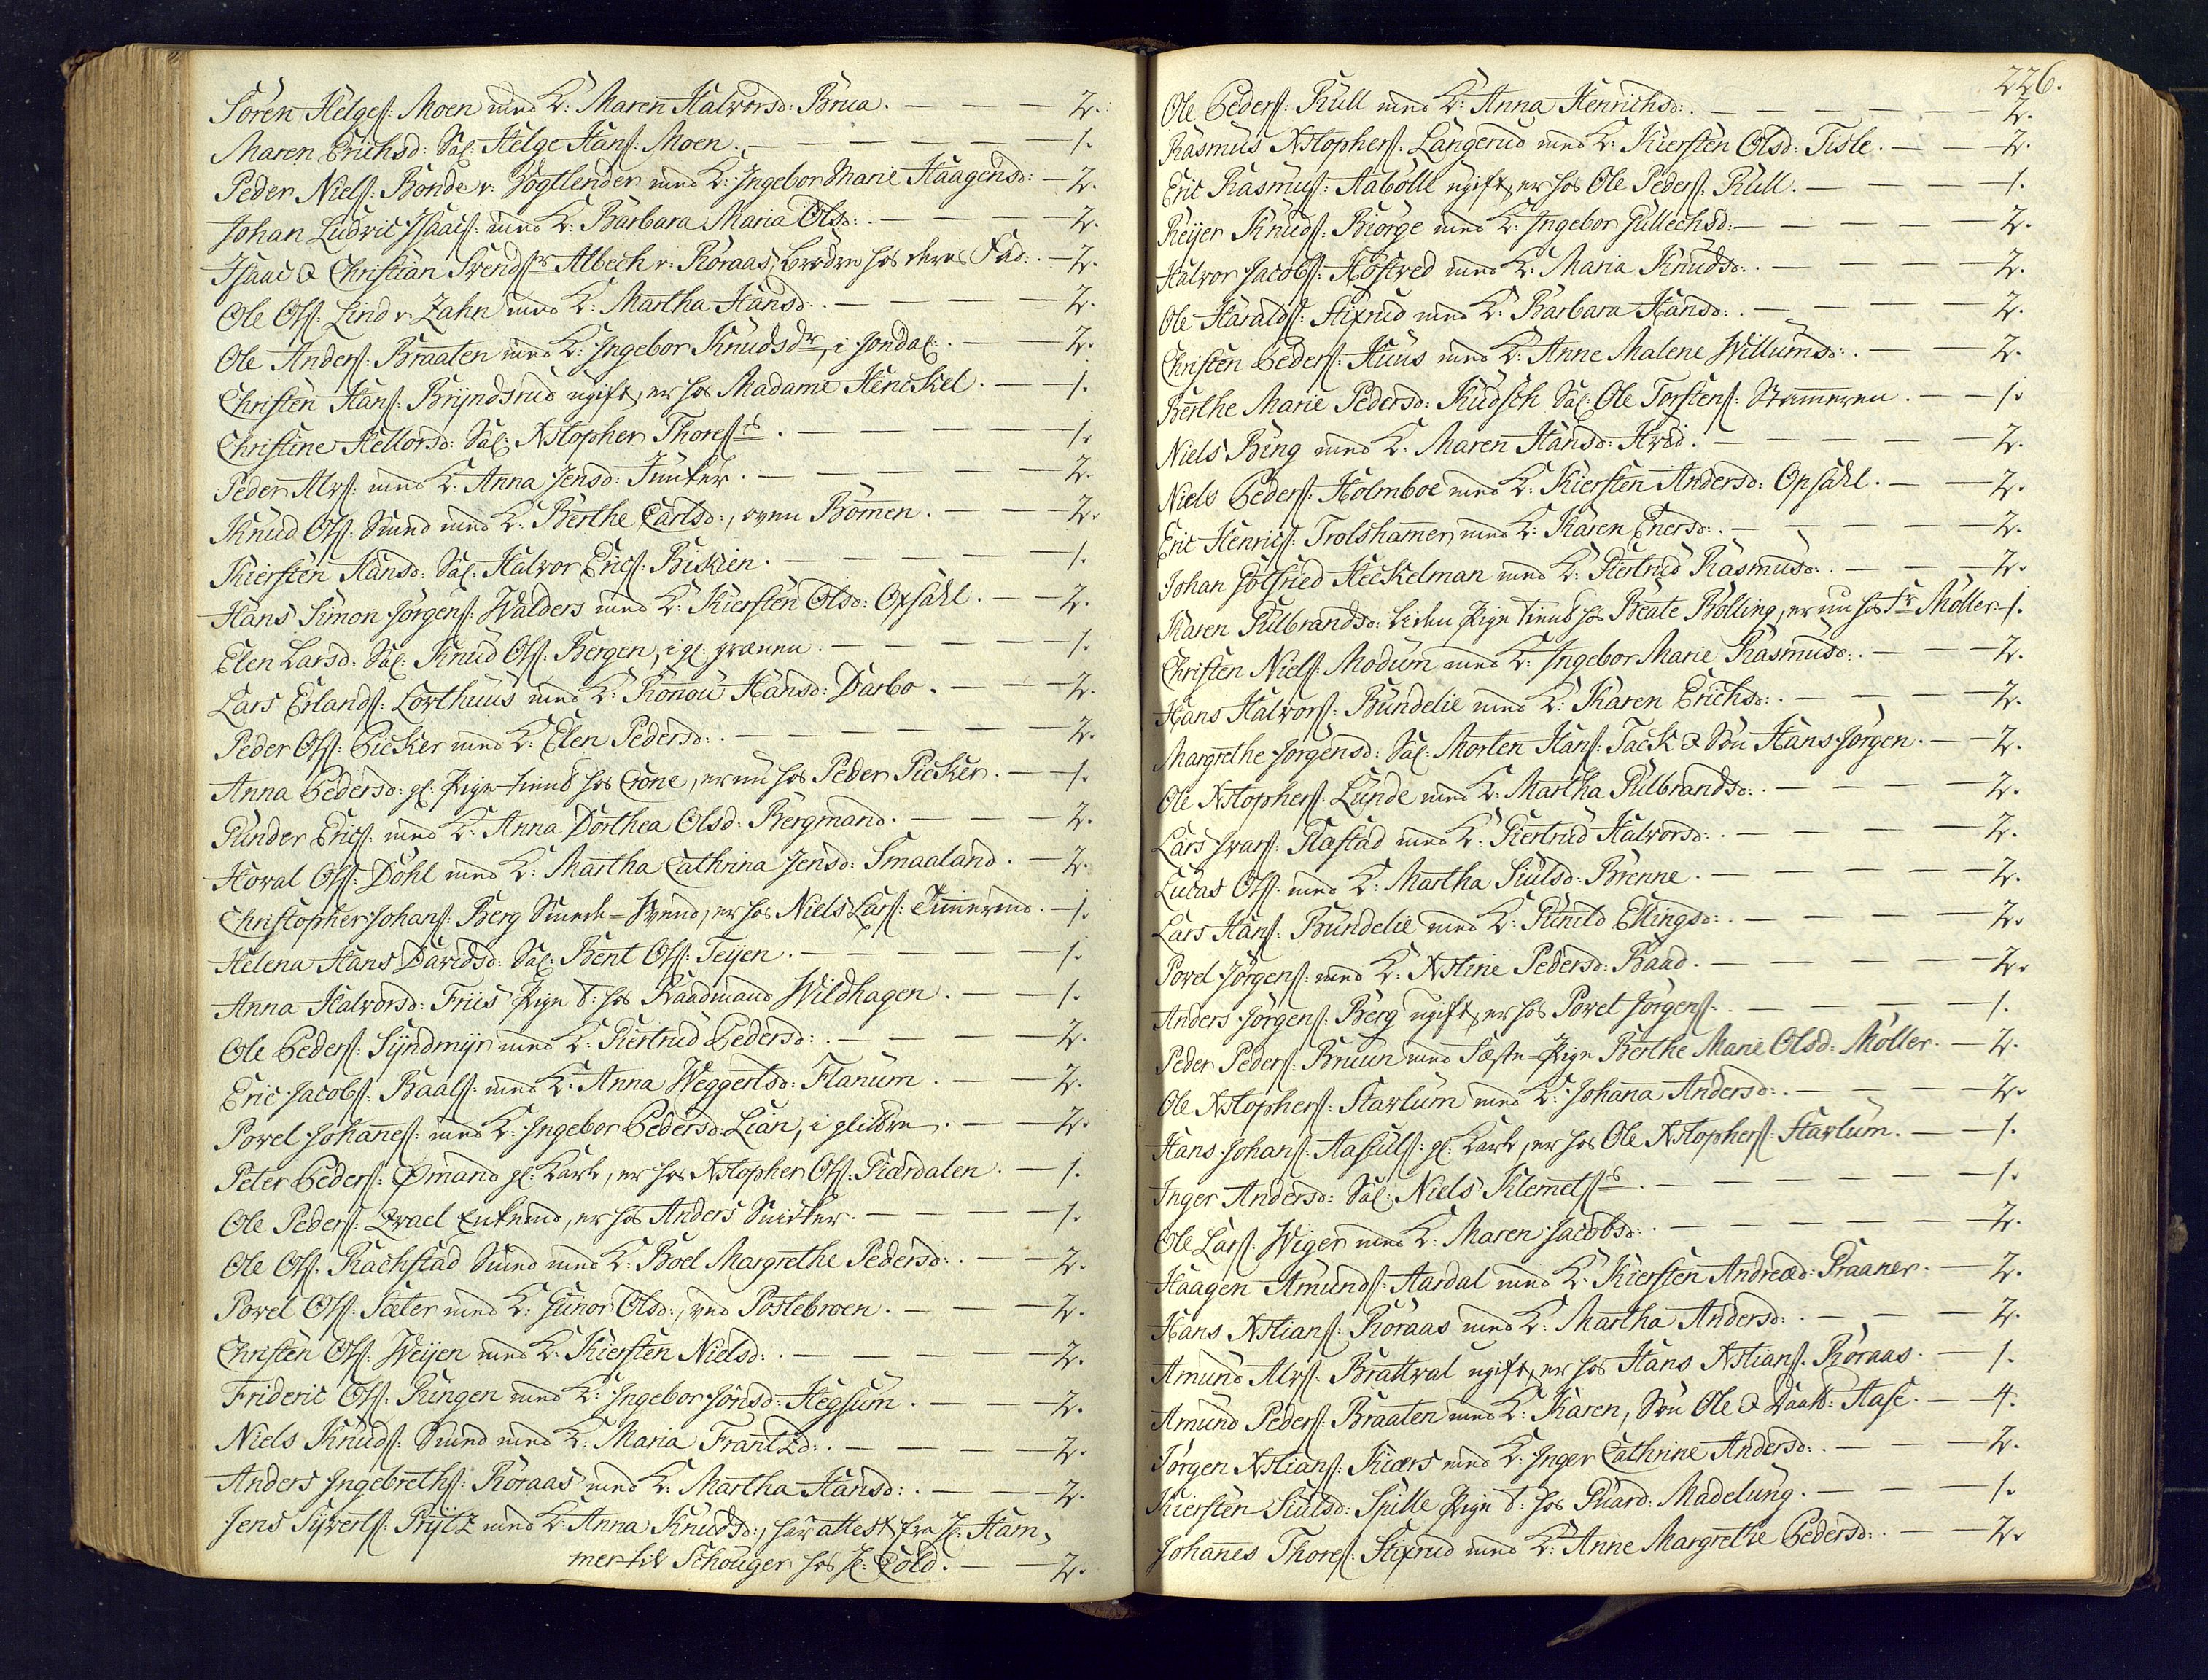 Sören Helges: Moen med K: Maren Halvorsd: Brua. — — 2.
Maren Erichsd: Sal: Helge Hans: Moen. — — — — — 1.
Peder Niels: Bonde v: Vogtlender med K: Ingebor Marie Haagensd: — 2.
Johan Ludvic Isaacs: med K: Barbara Maria Olsd: — — — 2.
Isaac & Christian Svends:r Albech v: Röraas, brödre hos deres Fad: — 2.
Ole Ols: Lind v: Zahn med K: Martha Hansd: — — — — 2.
Ole Anders: Braaten med K: Ingebor Knudsdr, i Jondal: — — 2.
Christen Hans: Bryndsrud ugift, er hos Madame Henckel. — 1.
Christine Hellorsd: Sal: Xstopher Thores:s. — — — — — 1.
Peder Alvs: med K: Anna Jensd: Junker. — — — — — 2.
Knud Ols: Smed med K: Berthe Carlsd:, oven Bommen. — — — 2.
Kiersten Hansd: Sal: Halvor Erics: Biskien. — — — — 1.
Hans Simon Jörgens: Walders med K: Kiersten Olsd: Opsahl. — — 2.
Elen Larsd: Sal: Knud Ols: Bergen, i gl: — — — — 1.
Lars Erlands: Lorthuus med K: Ronou Hansd: Darbo. — — — 2.
Peder Ols: Picker med K: Elen Pedersd: — — — — — 2.
Anna Pedersd: gl: Pige tient hos Crone, er nu hos Peder Picker. — 1.
Gunder Erics: med K: Anna Dorthea Olsd: Bergmand. — — — 2.
Hoval Ols: Dohl med K: Martha Cathrina Jensd: Smaaland. — 2.
Christopher Johans: Berg Smede-Svend, er hos Niels Lars: Timmermd. — 1.
Helena Hans Davidsd: Sal: Bent Ols: Teyen. — — — — — 1.
Anna Halvorsd: Friis Pige t: hos Raadmand Wildhagen. — — 1.
Ole Peders: Syndmyr med K: Giertrud Pedersd: — — — — 2.
Eric Jacobs: Baals: med K: Anna Weggertsd: Flanum. — — 2.
Povel Johannes: med K: Ingebor Pedersd: Lian, i — — 2.
Peter Peders: Ømand gl: Karl, er hos Xstopher Ols: Giærdalen. — 1.
Ole Peders: Qvael Enkemd, er hos Anders Snidker. — — — 1.
Ole Ols: Rachstad Smed med K: Boel Margrethe Pedersd: — — 2.
Povel Ols: Sæter med K: Gunor Olsd:, ved Postebroen. — — — 2.
Christen Ols: Weyen med K: Kiersten Nielsd: — — — — 2.
Frideric Ols: Ringen med K: Ingebor Jonsd: Hegsum. — — — 2.
Niels Knuds: Smed med K: Maria Frantzd: — — — — 2.
Anders Ingebreths: Röraas med K: Martha Hansd: — — — 2.
Jens Syverts: Prytz med K: Anna Knudsd:, har attest fra H: Ham-
mer til Schouger hos H: Cold. — — 2.
226.
Ole Peders: Kull med K: Anna Henrichsd: — — — — — 2.
Rasmus Xstophers: Langerud med K: Kiersten Olsd: Tisle. — — 2.
Eric Rasmus: Aabölle ugift, er hos Ole Peders: Kull. — — — 1.
Reyer Knuds: Biörge med K: Ingebor Gullechsd: — — — — 2.
Halvor Jacobs: Höstved med K: Maria Knudsd: — — — — 2.
Ole Haralds: Stixrud med K: Barbara Hansd: — — — — 2.
Christen Peders: Huus med K: Anne Malene Willumsd: — — 2.
Berthe Marie Pedersd: Kudsch Sal: Ole Torstens: — — 1.
Niels Bing med K: Maren Hansd: Hvid. — — — — — 2.
Niels Peders: Holmboe med K: Kiersten Andersd: Opsahl. — — 2.
Eric Henrics: Trolshamer med K: Karen Enersd: — — — — 2.
Johan Gotfried Heckelman med K: Giertrud Rasmusd: — — — 2.
Karen Gulbrandsd: Pige tient hos Beate Bolling, er nu hos Fr: Möller — 1.
Christen Niels: Modum med K: Ingebor Marie Rasmusd: — — — 2.
Hans Halvors: Bundelie med K: Karen Erichsd: — — — — 2.
Margrethe Jorgensd: Sal: Morten Hans: Tack & Sön Hans Jörgen. — — 2.
Ole Xstophers: Lunde med K: Martha Gulbrandsd: — — — — 2.
Lars Ivars: Flæstad med K: Giertrud Halvorsd: — — — — 2.
Lucas Ols: med K: Martha Siulsd: Brenne. — — — — — 2.
Lars Hans: Bundelie med K: Gunild Ellingsd: — — — — — 2.
Povel Jörgens: med K: Xstine Pedersd: Baad. — — — — — 2.
Anders Jörgens: Berg ugift, er hos Povel Jörgens: — — — — 1.
Peder Peders: Bruun med Fæste-Pige Berthe Marie Olsd: Möller. — 2.
Ole Xstophers: Starlum med K: Johana Andersd: — — — — 2.
Hans Johans: Aasculs: gl: Karl, er hos Ole Xstophers: Starlum. — — 1.
Inger Andersd: Sal: Niels Klemets:s — — — — — — 1.
Ole Lars: Wiger med K: Maren Jacobsd: — — — — — — 2.
Haagen Amunds: Aardal med K: Kiersten Andread: Graaner. — 2.
Hans Xstians: Röraas med K: Martha Andersd: — — — — 2.
Amund Alvs: Brattval ugift, er hos Hans Xstians: Röraas. — 1.
Amund Peders: Braaten med K: Karen, Sön Ole & Daatt: Aase. — 4.
Törgen Xstians: Kiærs med K: Inger Cathrine Andersd: — — — 2.
Kiersten Siulsd: Spille Pige t: hos Guard: Madelung. — — — 1.
Johanes Thores: Stixrud med K: Anne Margrethe Pedersd: — — 2.